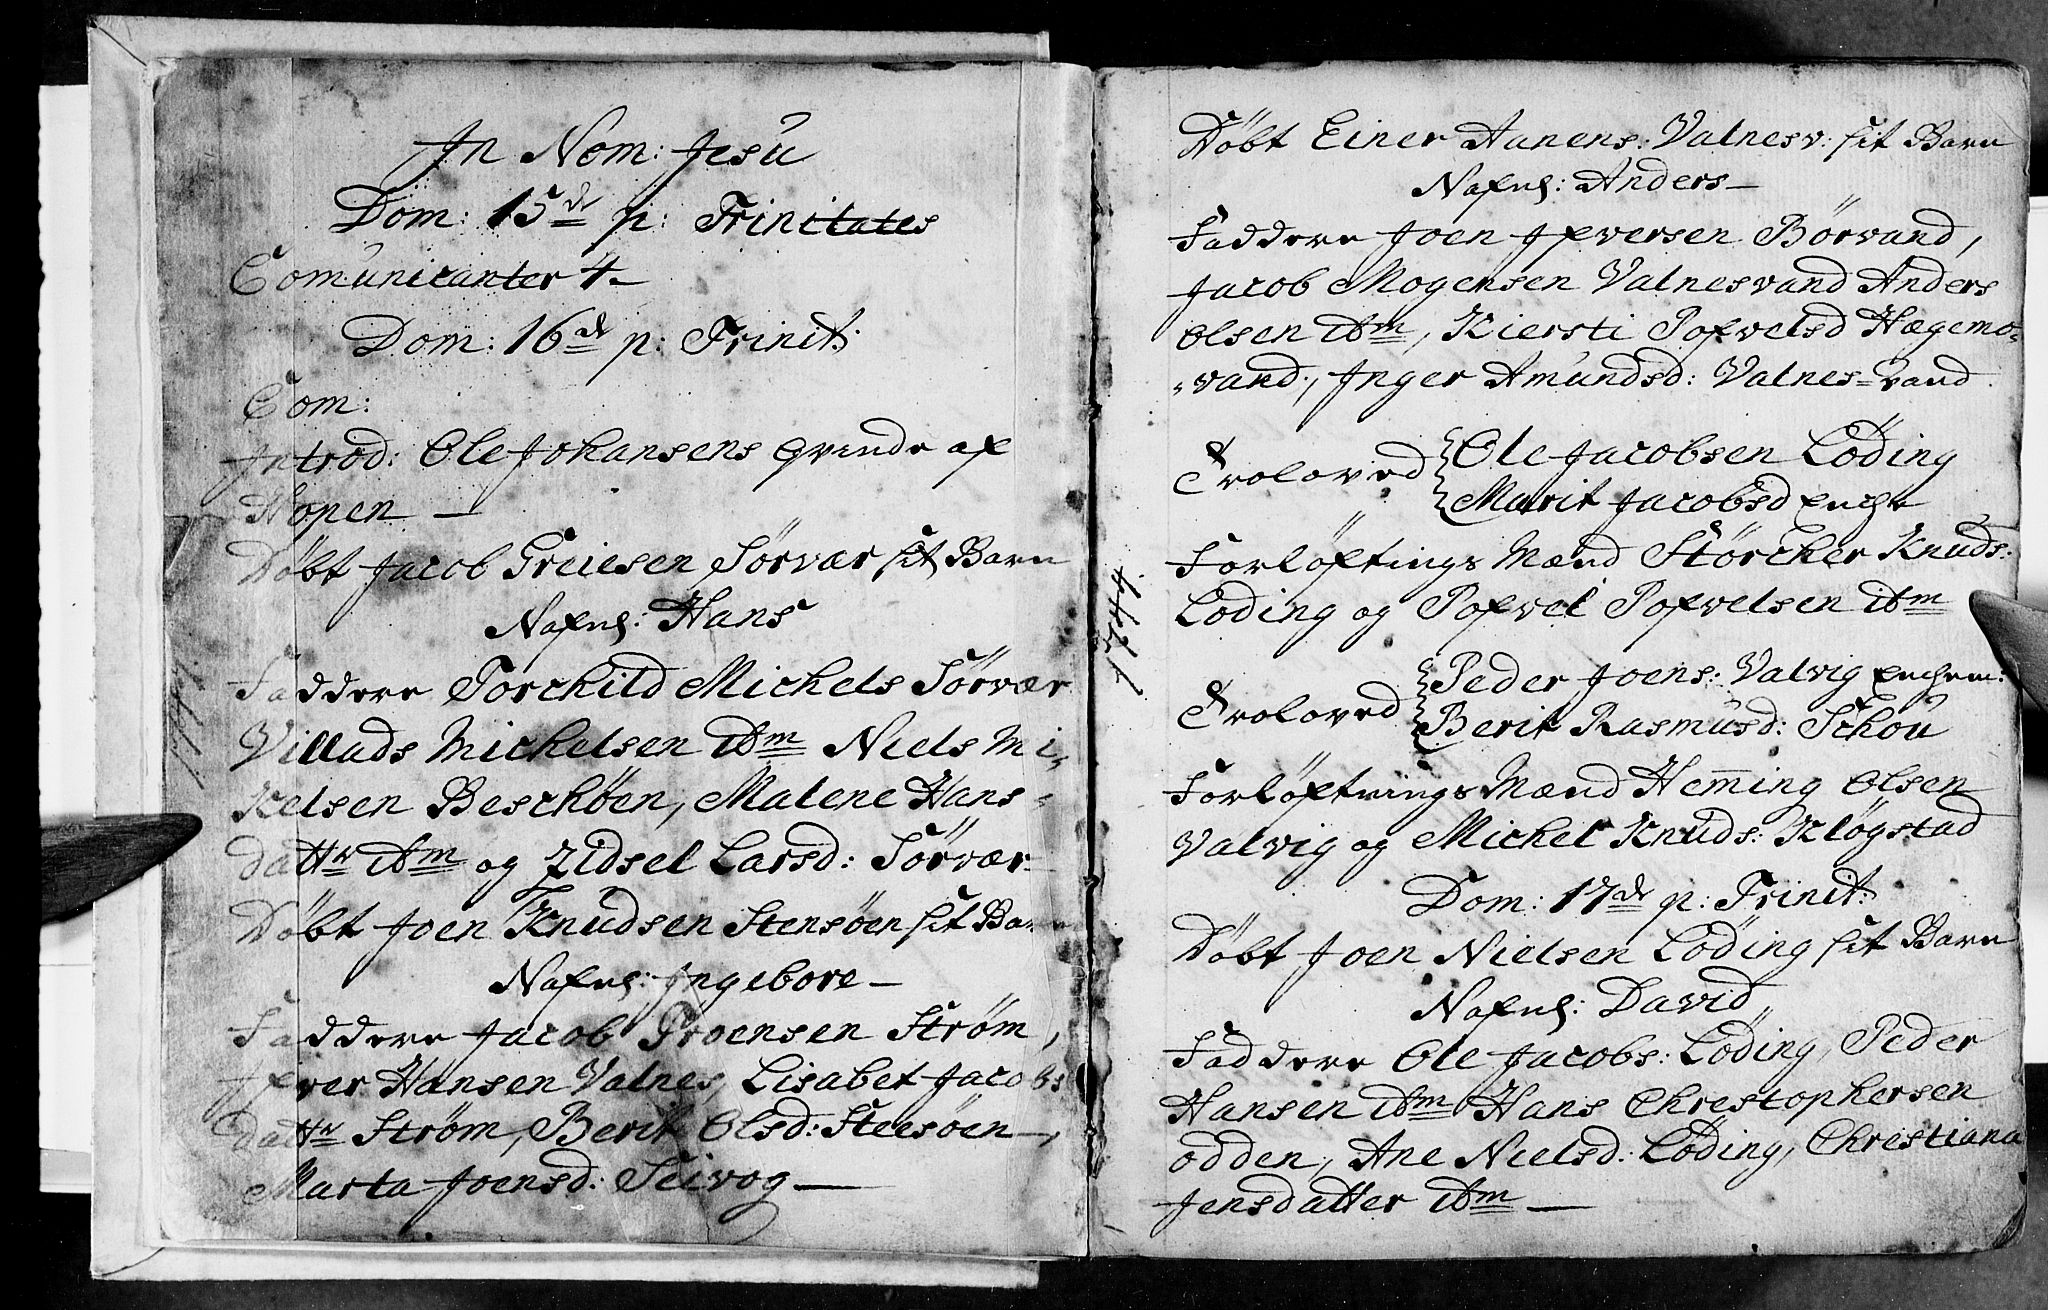 In Nom: Jesu
Dom: 15de p: Trinitates
Comunicanter 4
Dom: 16de p: Trinit:
Com:
Introd: Ole Johansens qvinde af
Hopen
Døbt Jacob Greiesen Sørvær sit Barn
Nafnl: Hans
Faddere Torchild Michels Sørvær
Villads Michelsen ibm Niels Mi-
kelsen Beschøen, Malene Hans-
dattr ibm og Zidsel Larsd: Sørvær
Døbt Joen Knudsen Stensøen sit Barn
Nafnl: Ingebore
Faddere Jacob Troensen Strøm,
Ifver Hansen Valnes, Lisabet Jacobs
dattr Strøm, Berit Olsd: Steesøen,
Marta Joensd: Seivog
1744.
Døbt Einer Hanens: Valnesv: sit Barn
Nafnl: Anders
Faddere Joen Ifversen Børvand,
Jacob Mogensen Valnesvand Anders
Olsen ibm, Kiersti Pofvelsd Hægemo-
vand, Inger Amundsd: Valnes=vand
Troloved Ole Jacobsen Løding
Marit Jacobsd Enche
Forløftnings Mænd Størcher Knuds:
Løding og Pofvel Pofvelsen ibm
1744.
Troloved Peder Joens: Valvig Enchem:
Berit Rasmusd: Schou
Forløftnings Mænd Heming Olsen
Valvig og Michel Knuds: Kløgstad
Dom: 17de p: Trinit:
Døbt Joen Nielsen Løding sit Barn
Nafnl: David
Faddere Ole Jacobs: Løding, Peder
Hansen ibm Hans Chrestophersen
odden, Ane Nielsd: Løding, Chrestiana
Jensdatter ibm